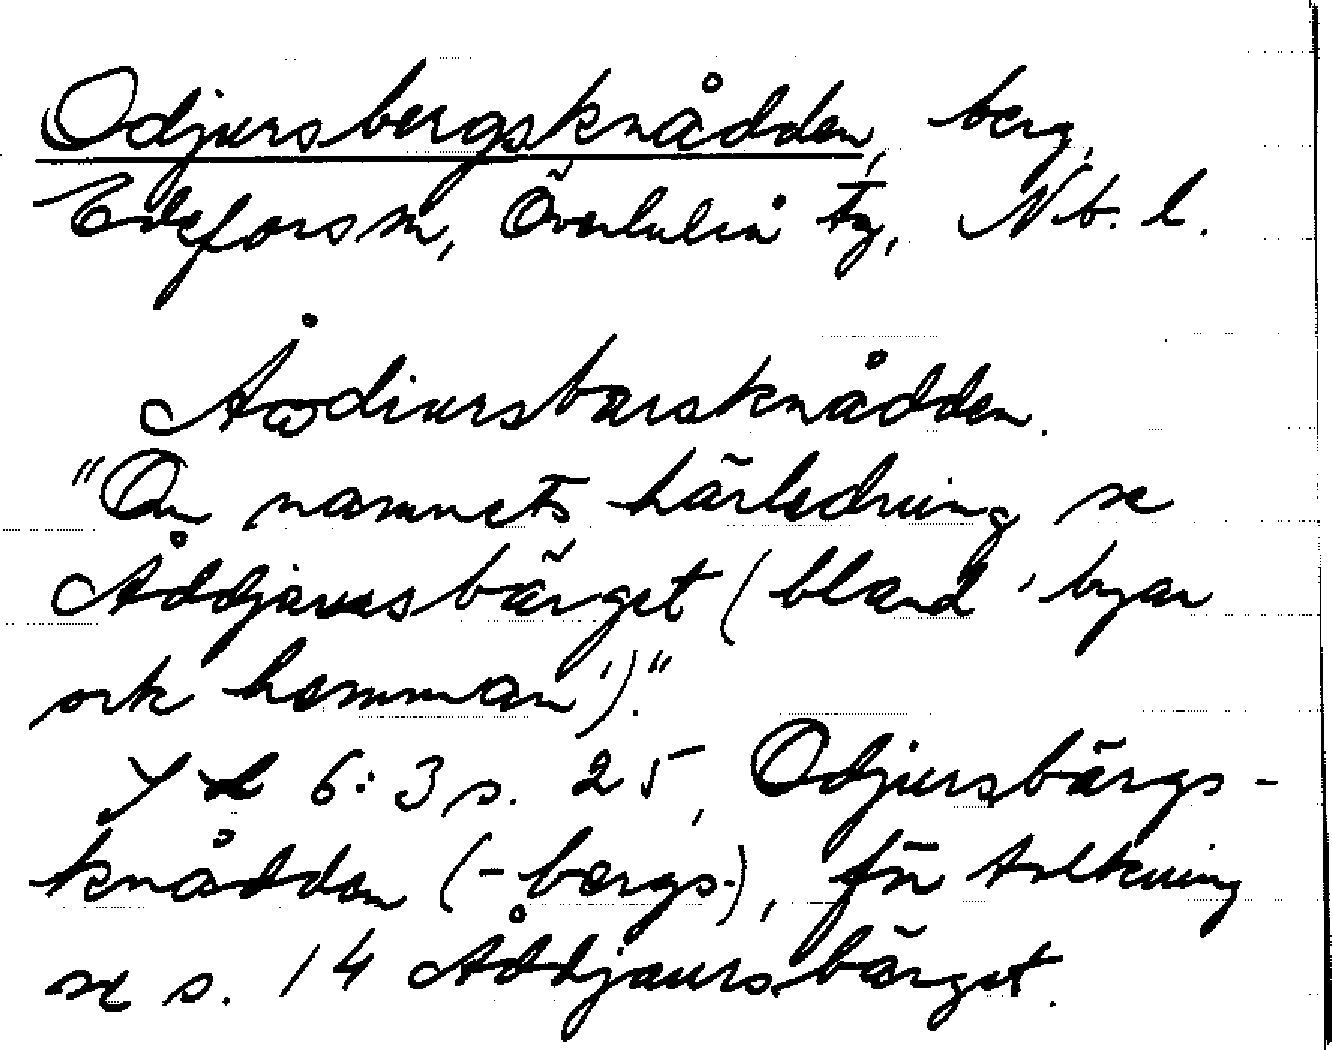 Odjursbergsknådden, berg,
Edefors sn, Överluleå tg, Nb. l.
Åωdiursbarsknådden.
"Om namnets härledning se
Åddjaursbärget (bland 'byar
ock hemman')."
6:3 s. 25, Odjursbärgs-
knådden (-bergs-), för tolkning
se s. 14 Åddjaursbärget.